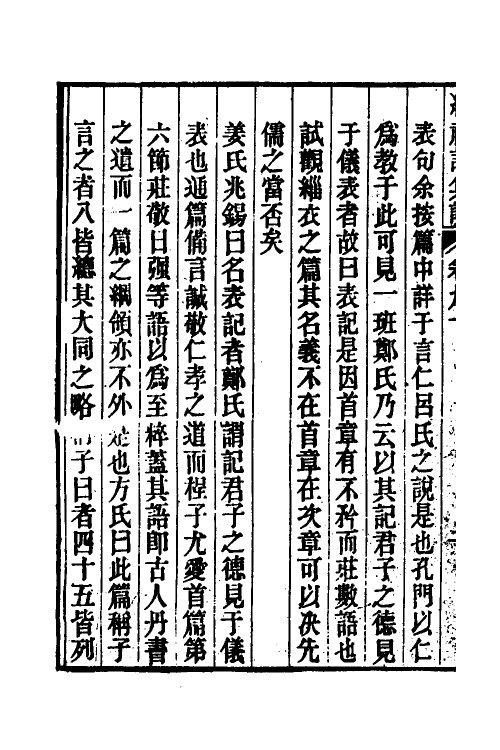 表句余按篇中詳于言仁呂氏之說是也孔門以仁
爲教于此可見一班鄭氏乃云以其記君子之德見
于儀表者故曰表記是因首章有不矜而莊數語也
試觀緇衣之篇其名義不在首章在次章可以決先
儒之當否矣
姜氏兆錫曰名表記者鄭氏謂記君子之德見于儀
表也通篇備言誠敬仁孝之道而程子尤愛首篇第
六節莊敬日强等語以爲至粹蓋其語卽古人丹書
之遺而一篇之綱領亦不外是也方氏曰此篇稱子
言之者八皆總其大同之略 子曰者四十五皆列